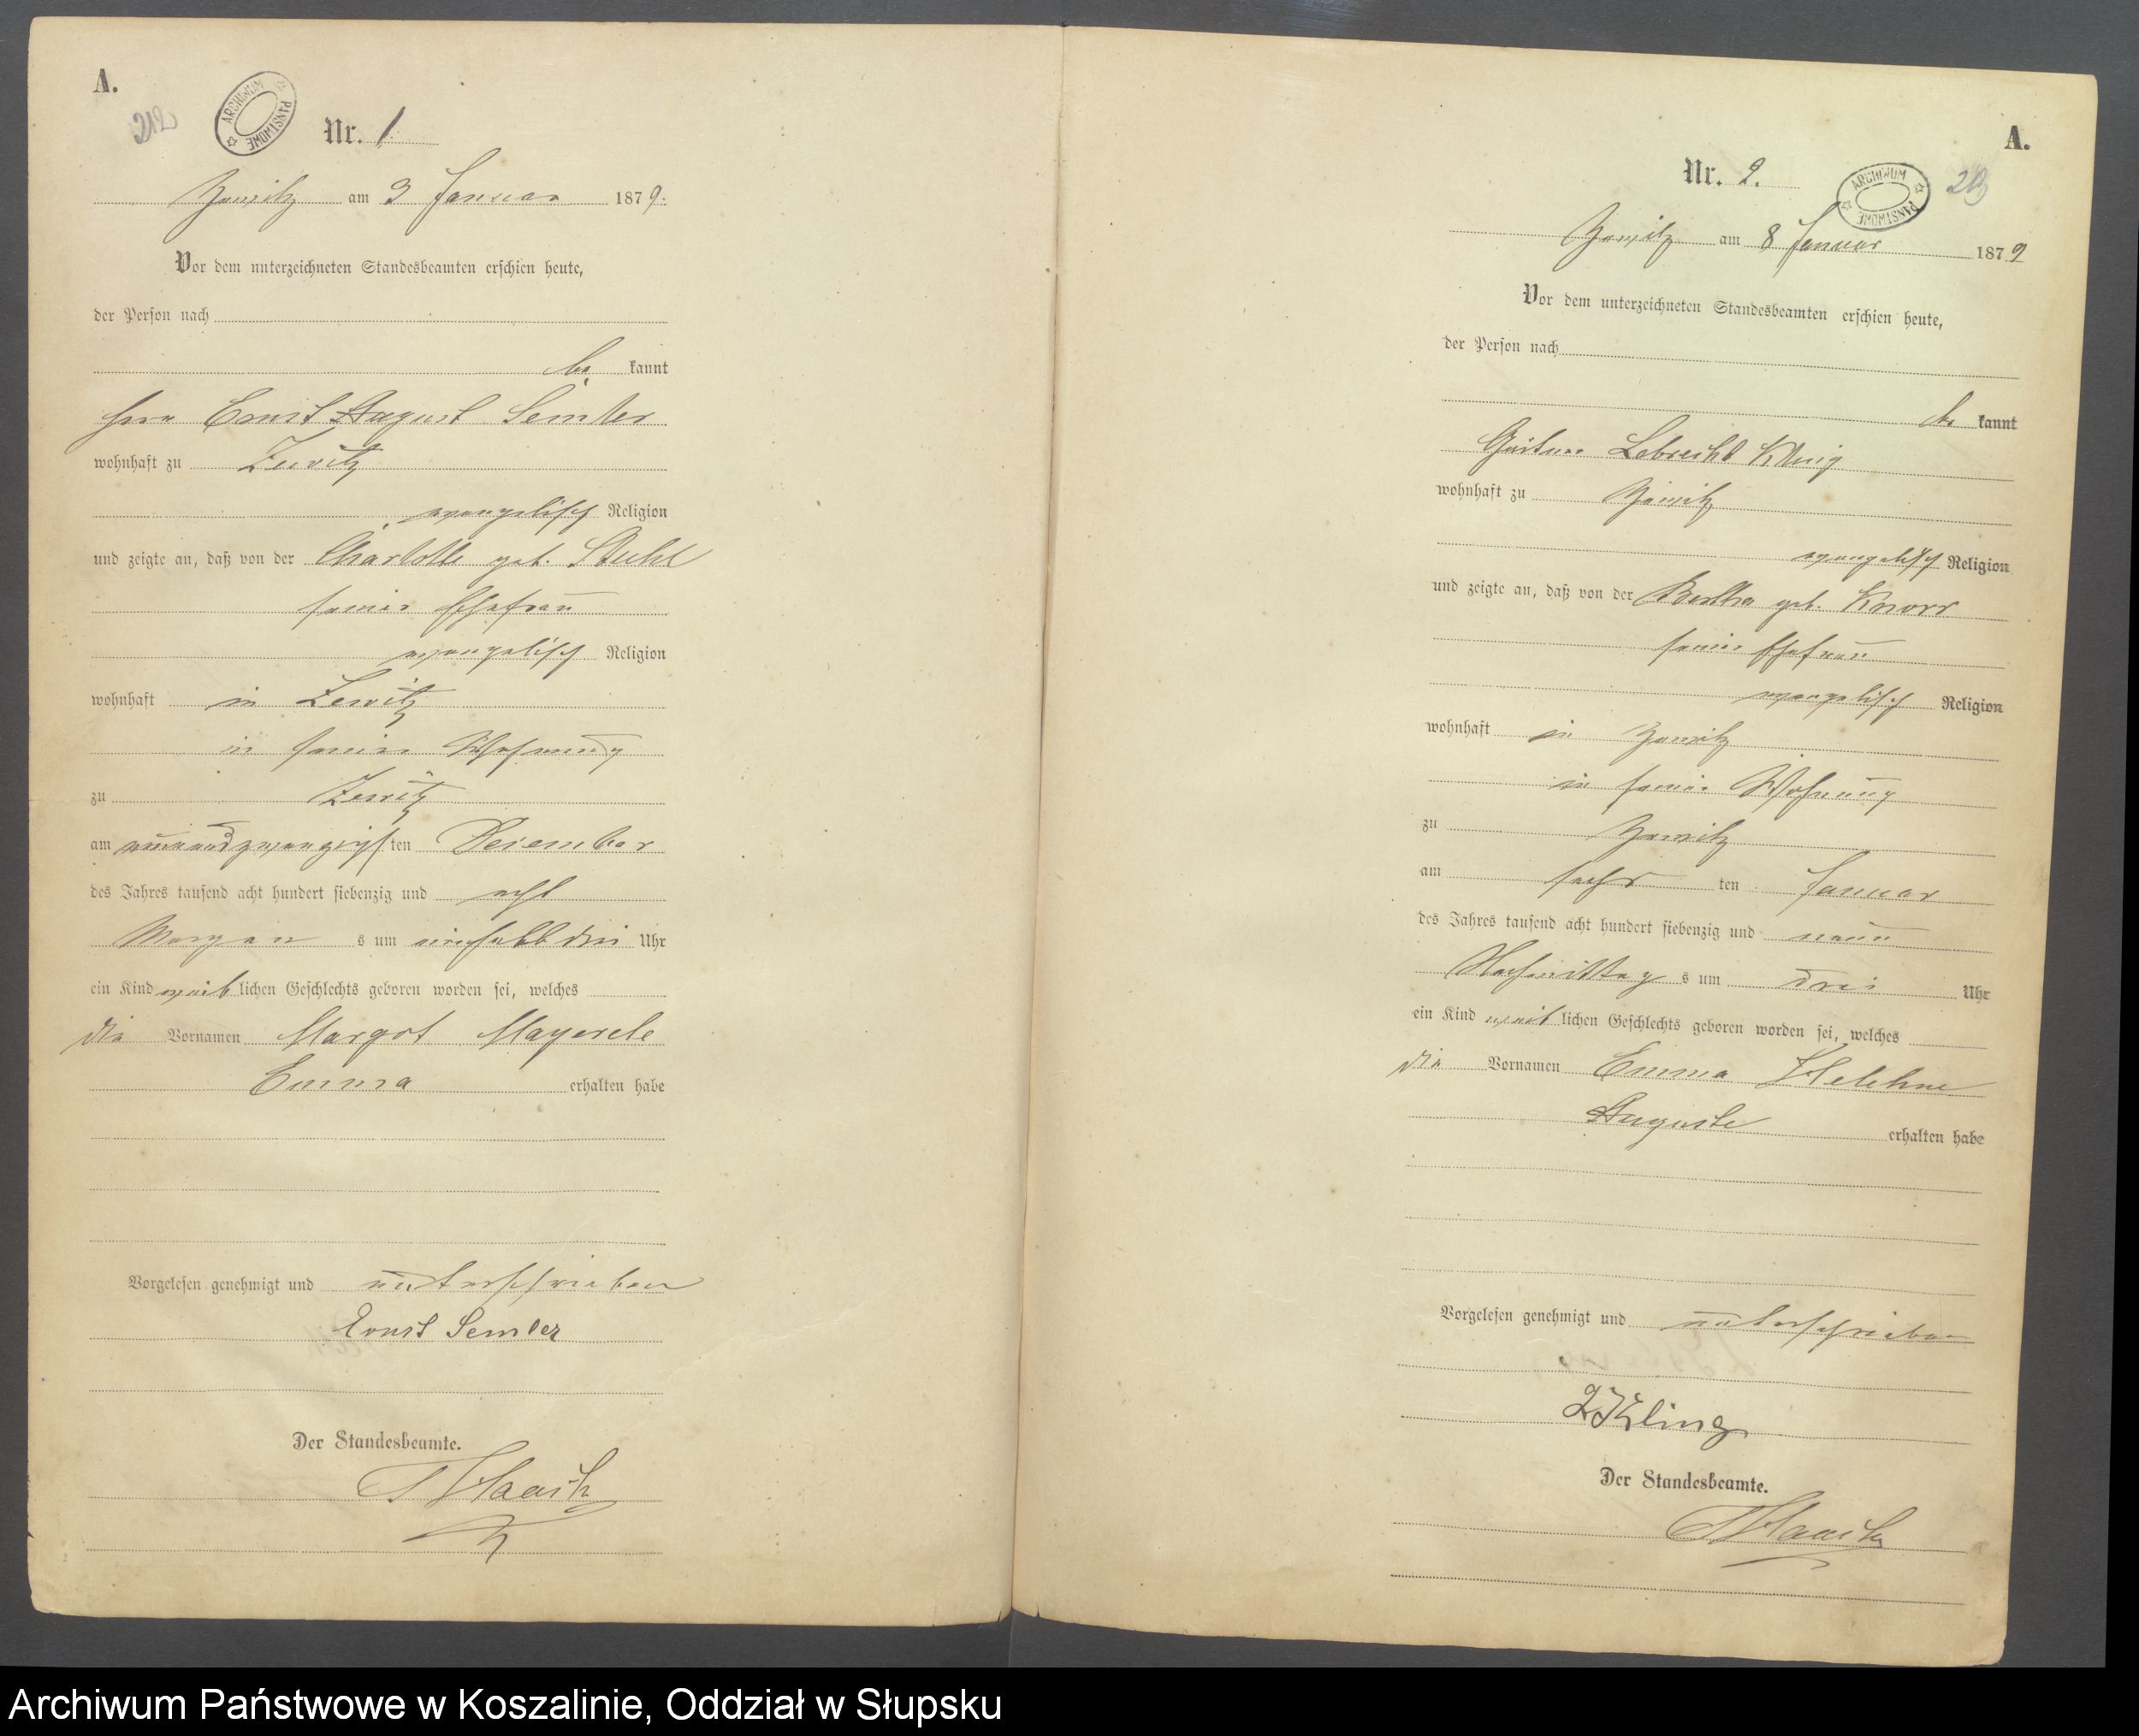 A.
212
ARCHIWUM PAŃSTWOWE
Nr. 1
am 3 Januar 1879.
Vor dem unterzeichneten Standesbeamten erschien heute,
der Person nach
be kannt
Herr Ernst August Semler
wohnhaft zu Zewitz
evangelisch Religion
und zeigte an, daß von der Charlotte geb. Stuhl
seiner Ehefrau
evangelisch Religion
wohnhaft in Zewitz
in seiner Wohnung
zu Zewitz
am neunundzwanzigsten Dezember
des Jahres tausend acht hundert siebenzig und acht
Morgen s um einhalb drei Uhr
ein Kind weiblichen Geschlechts geboren worden sei, welches
die Vornamen Margot
Emma erhalten habe
Vorgelesen genehmigt und unterschrieben
Ernst Semler
Der Standesbeamte.
A.
Nr. 2.
ARCHIWUM PAŃSTWOWE
213
am 8 Januar 1879
Vor dem unterzeichneten Standesbeamten erschien heute,
der Person nach
be kannt
Gärtner Lebrecht Kling
wohnhaft zu
evangelisch Religion
und zeigte an, daß von der Bertha geb. Knorr
seiner Ehefrau
evangelisch Religion
wohnhaft in
in seiner Wohnung
zu
am sechs ten Januar
des Jahres tausend acht hundert siebenzig und neun
Nachmittag s um drei Uhr
ein Kind weiblichen Geschlechts geboren worden sei, welches
die Vornamen Emma Helehne
Auguste erhalten habe
Vorgelesen genehmigt und unterschrieben
L Kling
Der Standesbeamte.
Archiwum Państwowe w Koszalinie, Oddział w Słupsku